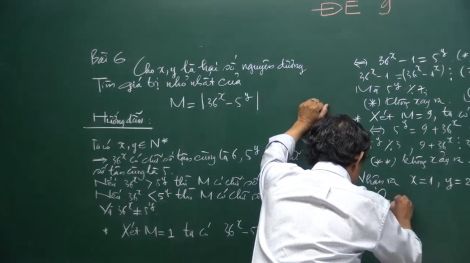 ĐỀ 9
Bài 6 Cho x, y là hai số nguyên dương.
Tìm giá trị nhỏ nhất của
M = |36^x - 5^y|
Hướng dẫn:
Ta có x, y ∈ N*
→ 36^x có chữ số tận cùng là 6, 5^y
số tận cùng là 5.
Nếu 36^x > 5^y thì M có chữ số
Nếu 36^x < 5^y thì M có chữ số
Vì 36^x ≠ 5^y
* Xét M = 1 ta có 36^x - 5
⇔ 36^x - 1 = 5^y (*)
36^x - 1 =
Mà 5^y
(*) không xảy ra.
* Xét M = 9, ta có
⇔ 5^y = 9 + 36^x
9 + 36^x
(**) không xảy ra
Nhận ra x = 1, y = 2